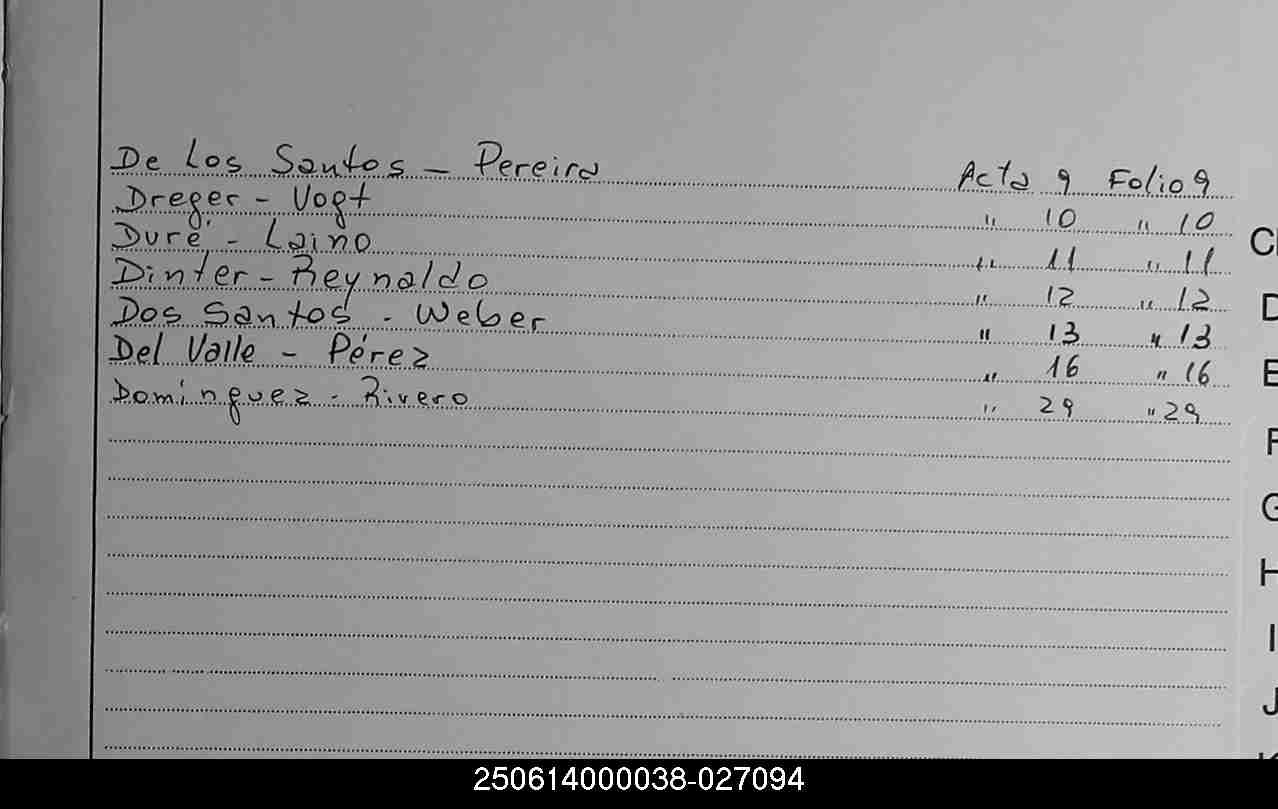 De Los Santos - Pereira Acta 9 Folio 9
Dreger - Vogt " 10 " 10
Duré - Laino " 11 " 11
Dinter - Reynaldo " 12 " 12
Dos Santos - Weber " 13 " 13
Del Valle - Pérez " 16 " 16
Domínguez - Rivero " 29 " 29
C
D
E
F
G
H
I
J
250614000038-027094